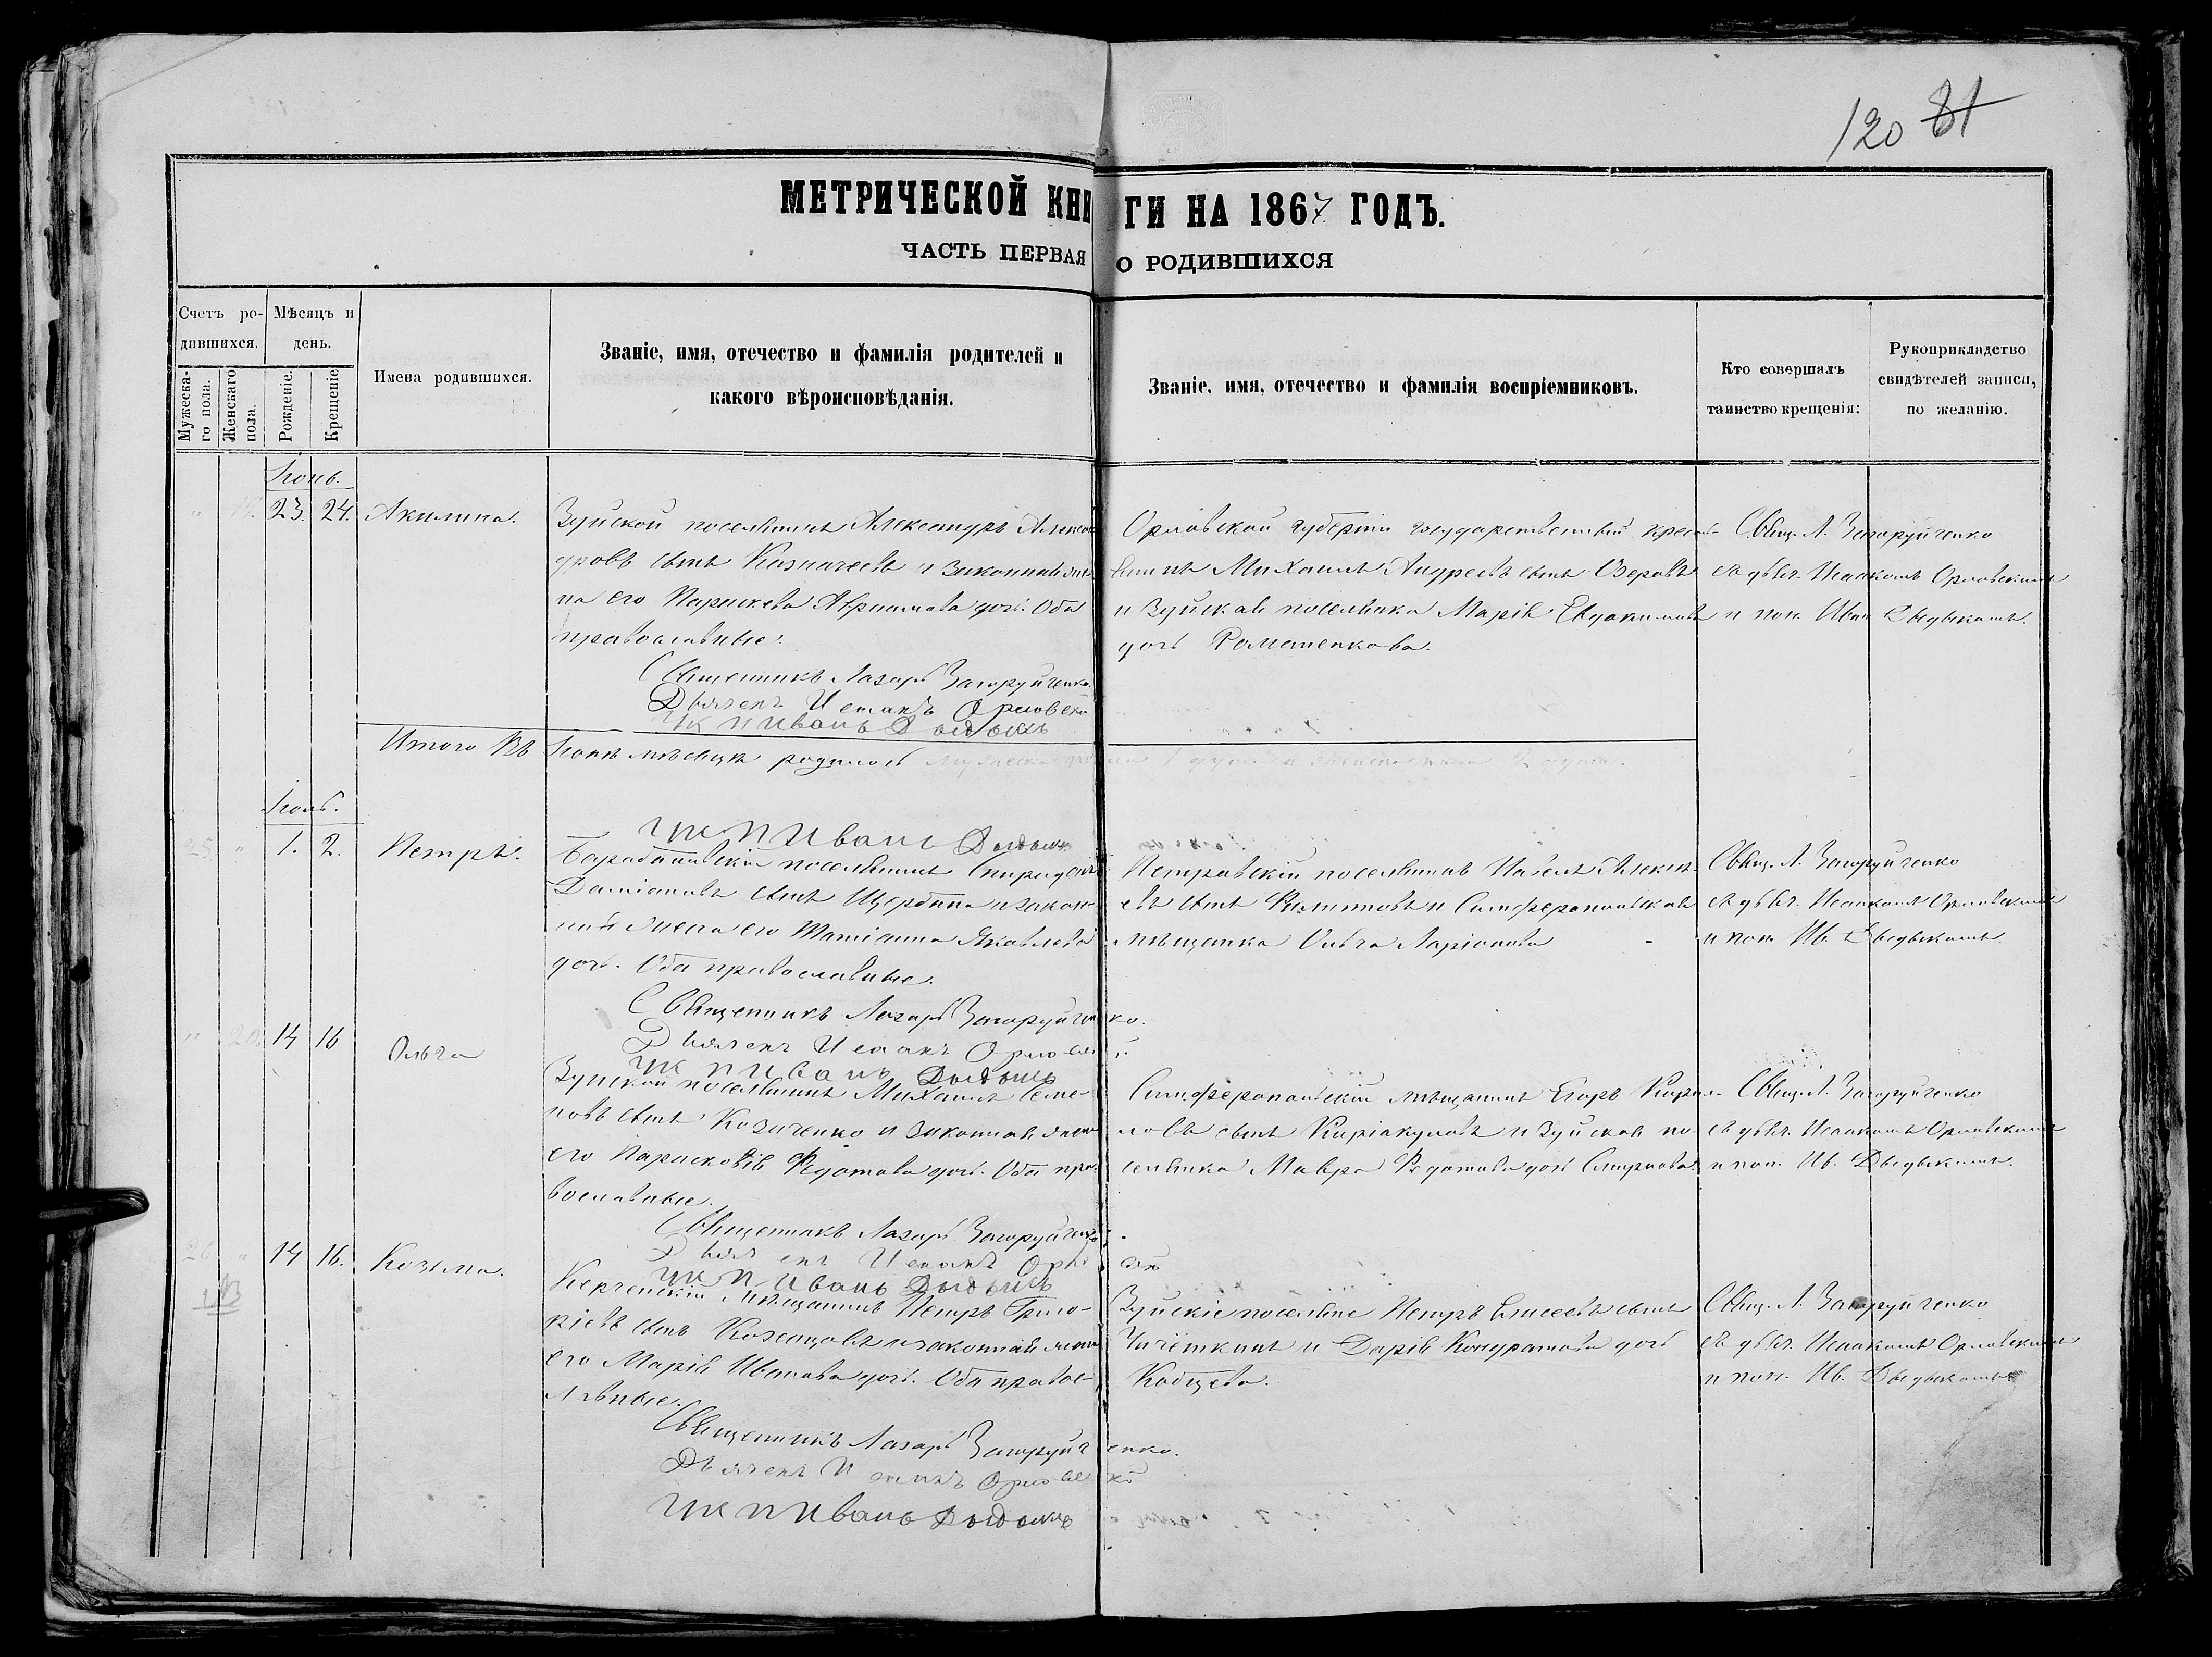 120 81
МЕТРИЧЕСКОЙ КНИГИ НА 1867 ГОДЪ.
ЧАСТЬ ПЕРВАЯ О РОДИВШИХСЯ
Счетъ ро-
дившихся.
Мужеска-
го пола.
Женскаго
пола.
Мѣсяцъ и
день.
Рожденіе.
Крещеніе
Имена родившихся.
Званіе, имя, отечество и фамилія родителей и
какого вѣроисповѣданія.
Званіе, имя, отечество и фамилія воспріемниковъ.
Кто совершалъ
таинство крещенія:
Рукоприкладство
свидѣтелей записи,
по желанію.
Іюнь.
23. 24. Акилина.
Зуйской поселянинъ Александръ Алексан
дровъ сынъ Казначеевъ и законная же
на его Параскева Авраамова дочь. Оба
православные.
Священникъ Лазарь Загоруйченко.
Дьячекъ Исаакъ Орловскі
Иванъ
Орловской губерніи государственный крест-
янинъ Михаилъ Андреевъ сынъ Озеровъ
и Зуйская поселянка Марія Евдокимова
дочь Романенкова.
Свящ. Л. Загоруйченко
съ дьяч. Исаакомъ Орловскимъ
и пон. Иван
Итого въ Іюнѣ мѣсяцѣ родилось
Іюль.
25. " 1. 2. Петръ.
Иванъ
поселянинъ Спиридонъ
Даміановъ сынъ Щербина и закон-
ная жена его Татіанна Яковлева
дочь. Оба православные.
Священникъ Лазарь Загоруйченко.
Дьячекъ Исаакъ Орловскій
Иванъ
Петровскій поселянинъ Павелъ Алексѣ-
евъ сынъ Филиповъ и Симферопольская
мѣщанка Ольга Ларіонова
Свящ. Л. Загоруйченко
съ дьяч. Исаакомъ Орловскимъ
и пон. Ив.
" 20. 14 16 Ольга
Зуйской поселянинъ Михаилъ Семе-
новъ сынъ Козиченко и законная жена
его Парасковія Федотова дочь. Оба пра-
вославные.
Священникъ Лазарь Загоруйченко.
Дьячекъ Исаакъ
Иванъ
Симферопольскій мѣщанинъ Егоръ Кирил-
ловъ сынъ Киріакуловъ и Зуйская по-
селянка Мавра Федотова дочь Смирнова.
Свящ. Л. Загоруйченко
съ дьяч. Исаакомъ Орловскимъ
и пон. Ив.
26 " 14 16. Козьма.
Керченскій мѣщанинъ Петръ Григо-
ріевъ сынъ и законная жена
его Марія Иванова дочь. Оба правос-
лавные.
Священникъ Лазарь Загоруйченко.
Дьячекъ Исаакъ Орловскі
Иванъ
Зуйскіе поселяне Петръ Елисеевъ сынъ
и Дарія Кондратова дочь
Свящ. Л. Загоруйченко
съ дьяч. Исаакомъ Орловскимъ
и пон. Ив.